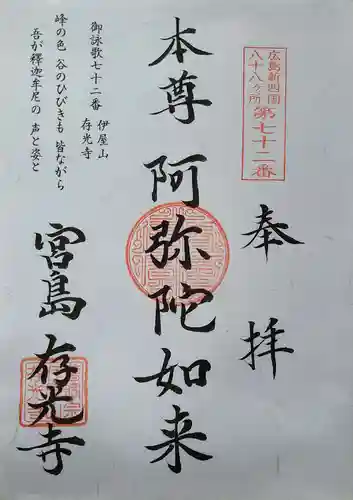 広島新四国
八十八ヶ所 第七十二番
奉拝
本尊 阿弥陀如来
宮島 存光寺
御詠歌七十二番 伊屋山
存光寺
峰の色 谷のひびきも 皆ながら
吾が釋迦牟尼の 声と姿と